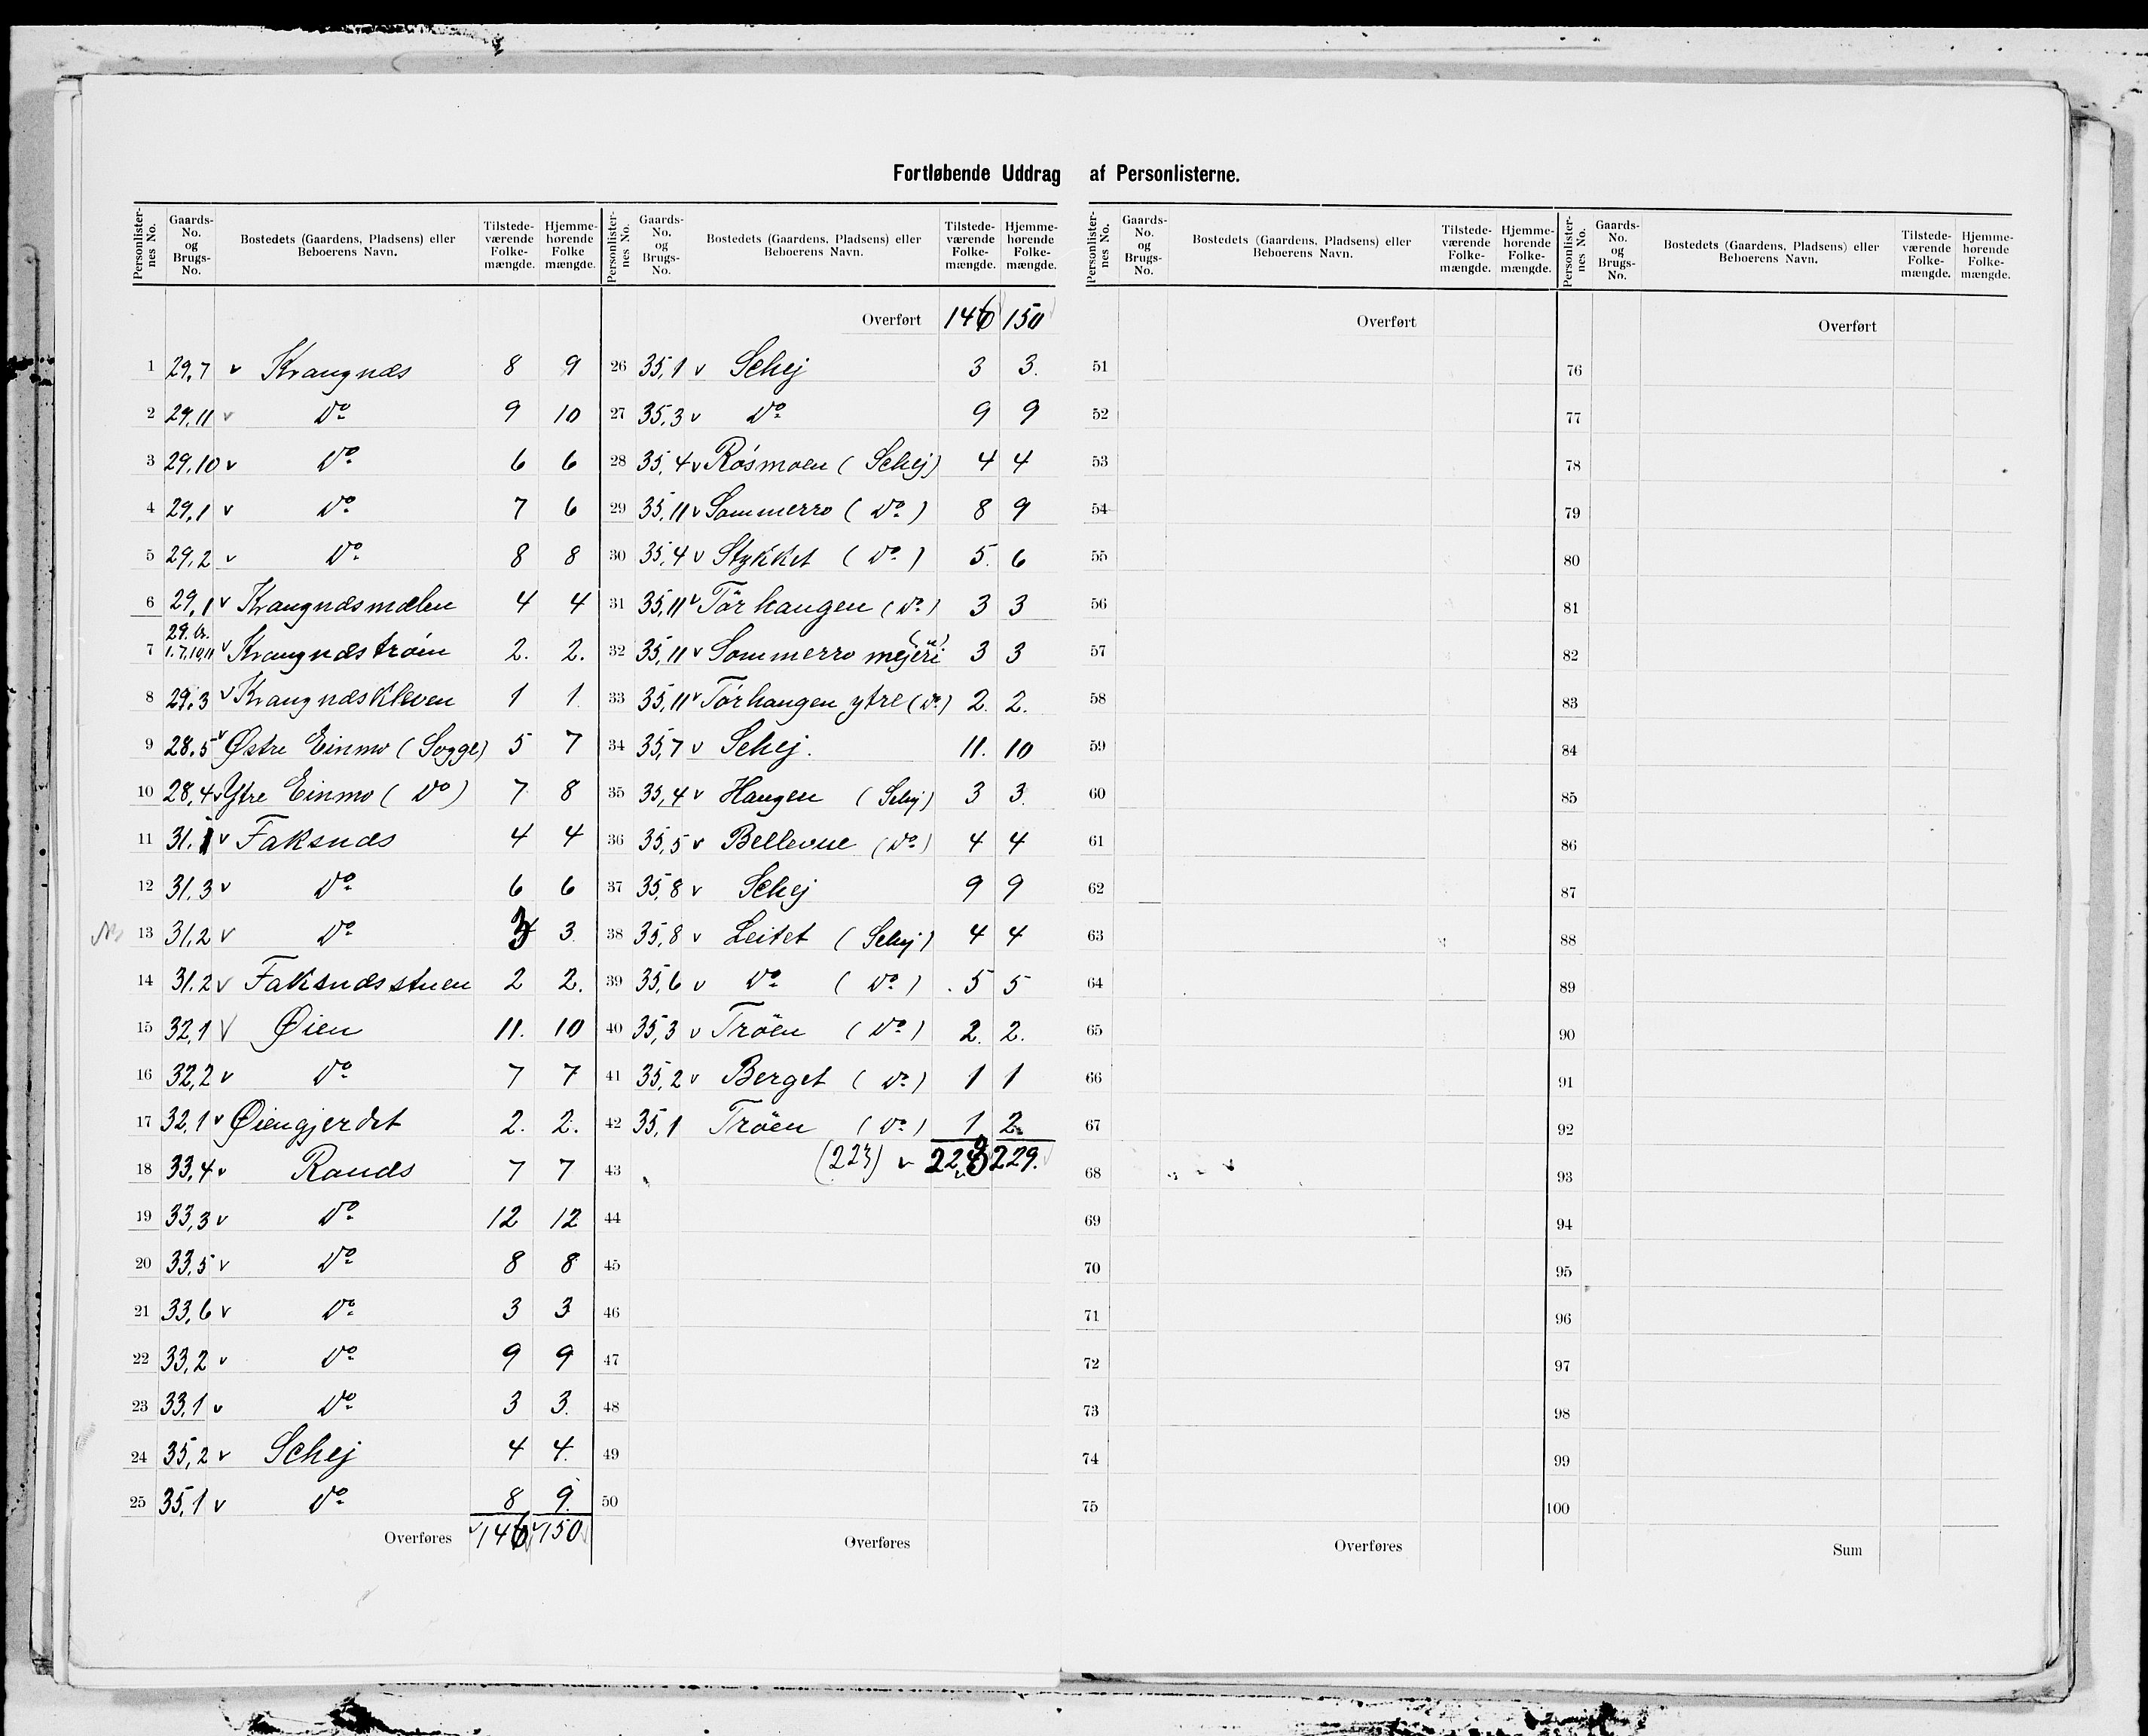 Fortløbende Uddrag af Personlisterne.
Personlister-nes No. | Gaards-No. og Brugs-No. | Bostedets (Gaardens, Pladsens) eller Beboerens Navn. | Tilstede-værende Folke-mængde. | Hjemme-hørende Folke mængde.
1 29,7 v Krangnæs 8 9
2 29,11 v Do 9 10
3 29,10 v Do 6 6
4 29,1 v Do 7 6
5 29,2 v Do 8 8
6 29,1 v Krangnæsmælen 4 4
7 29. br. 1.7.10,11 v Krangnæstrøen 2. 2.
8 29,3 v Krangnæskleven 1 1
9 28,5 v Østre Einmo (Sogge) 5 7
10 28,4 v Ytre Einmo (Do) 7 8
11 31.1 v Faksnæs 4 4
12 31,3 v Do 6 6
13 31,2 v Do 3 3
14 31.2 v Faksnæsstuen 2 2.
15 32,1 v Øien 11. 10
16 32,2 v Do 7 7
17 32,1 v Øiengjerdet 2. 2.
18 33,4 v Randæs 7 7
19 33,3 v Do 12 12
20 33,5 v Do 8 8
21 33,6 v Do 3 3
22 33,2 v Do 9 9
23 33,1 v Do 3 3.
24 35,2 v Schej 4 4.
25 35,1 v Do 8 9.
Overføres v146 v150
Personlister-nes No. | Gaards-No. og Brugs-No. | Bostedets (Gaardens, Pladsens) eller Beboerens Navn. | Tilstede-værende Folke-mængde. | Hjemme-hørende Folke-mængde.
Overført 146 150
26 35,1 v Schej 3 3.
27 35,3 v Do 9 9
28 35,4 v Røsmoen (Schej) 4 4
29 35,11 v Sommerro (Do) 8 9
30 35,4 v Stykket (Do) 5. 6
31 35,11 v Törhaugen (Do) 3 3
32 35,11 v Sommerro mejeri 3 3
33 35,11 v Törhaugen ytre (Do) 2. 2.
34 35,7 v Schej. 11. 10
35 35,4 v Haugen (Schej) 3 3.
36 35,5 v Bellevue (Do) 4 4
37 35,8 v Schej 9 9
38 35,8 v Leitet (Schej) 4 4
39 35,6 v Do (Do) 5 5
40 35,3 v Tröen (Do) 2. 2.
41 35,2 v Berget (Do) 1 1
42 35,1 Tröen (Do) 1 2.
43 (223) v 223 229.
44
45
46
47
48
49
50
Overføres
Personlister-nes No. | Gaards-No. og Brugs-No. | Bostedets (Gaardens, Pladsens) eller Beboerens Navn. | Tilstede-værende Folke-mængde. | Hjemme-hørende Folke-mængde.
Overført
51
52
53
54
55
56
57
58
59
60
61
62
63
64
65
66
67
68
69
70
71
72
73
74
75
Overføres
Personlister-nes No. | Gaards-No. og Brugs-No. | Bostedets (Gaardens, Pladsens) eller Beboerens Navn. | Tilstede-værende Folke-mængde. | Hjemme-hørende Folke-mængde.
Overført
76
77
78
79
80
81
82
83
84
85
86
87
88
89
90
91
92
93
94
95
96
97
98
99
100
Sum